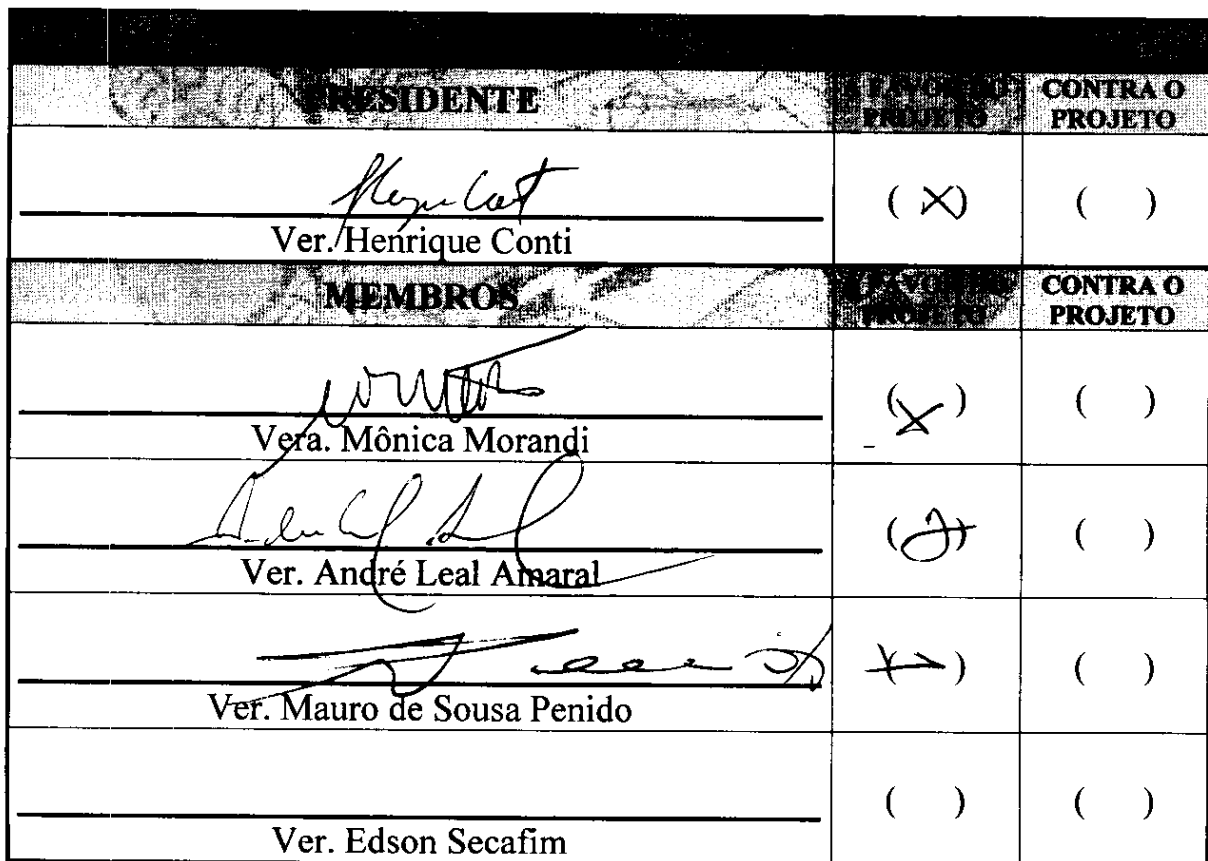 PRESIDENTE
A FAVOR DO
PROJETO
CONTRA O
PROJETO
( X )
( )
Ver. Henrique Conti
MEMBROS
A FAVOR DO
PROJETO
CONTRA O
PROJETO
( X )
( )
Vera. Mônica Morandi
( )
Ver. André Leal Amaral
( )
Ver. Mauro de Sousa Penido
( )
( )
Ver. Edson Secafim